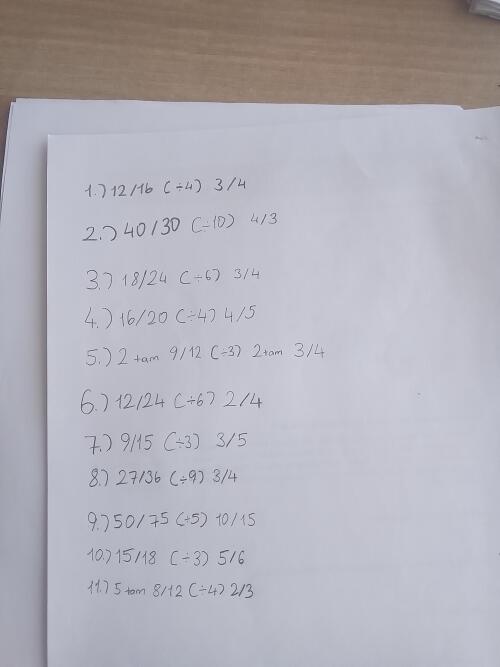 1.) 12/16 (÷4) 3/4
2.) 40/30 (÷10) 4/3
3.) 18/24 (÷6) 3/4
4.) 16/20 (÷4) 4/5
5.) 2 tam 9/12 (÷3) 2 tam 3/4
6.) 12/24 (÷6) 2/4
7.) 9/15 (÷3) 3/5
8.) 27/36 (÷9) 3/4
9.) 50/75 (÷5) 10/15
10.) 15/18 (÷3) 5/6
11.) 5 tam 8/12 (÷4) 2/3